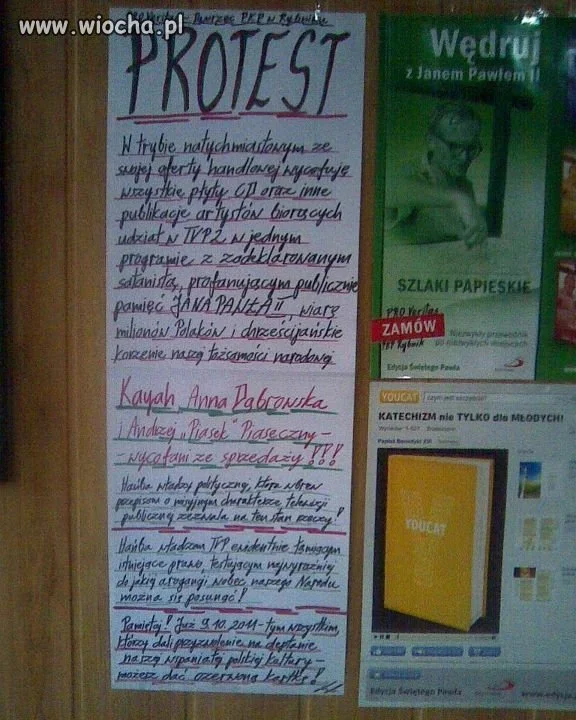 www.wiocha.pl
PRO Veritas - Dworzec PKP w Rybniku
PROTEST
W trybie natychmiastowym ze
swojej oferty handlowej wycofuję
wszystkie płyty CD oraz inne
publikacje artystów biorących
udział w TVP2 w jednym
programie z zadeklarowanym
satanistą, profanującym publicznie
pamięć JANA PAWŁA II, wiarę
milionów Polaków i chrześcijańskie
korzenie naszej tożsamości narodowej
Kayah, Anna Dąbrowska
i Andrzej „Piasek" Piaseczny -
- wycofani ze sprzedaży!!!
Hańba władzy politycznej, która wbrew
przepisom o misyjnym charakterze telewizji
publicznej zezwala na ten stan rzeczy!
Hańba władzom TVP ewidentnie łamiącym
istniejące prawo, testującym najwyraźniej
do jakiej arogancji wobec naszego Narodu
można się posunąć!
Pamiętaj! Już 9.10.2011 - tym wszystkim,
którzy dali przyzwolenie na deptanie
naszej wspaniałej polskiej kultury -
możesz dać czerwoną kartkę!
Wędruj
z Janem Pawłem II
SZLAKI PAPIESKIE
PRO Veritas
ZAMÓW
PKP Rybnik
Niezwykły przewodnik
po niezwykłych miejscach
Edycja Świętego Pawła
YOUCAT
czym jest szczęście?
KATECHIZM nie TYLKO dla MŁODYCH!
Papież Benedykt XVI
YOUCAT
Edycja Świętego Pawła
www.edycja